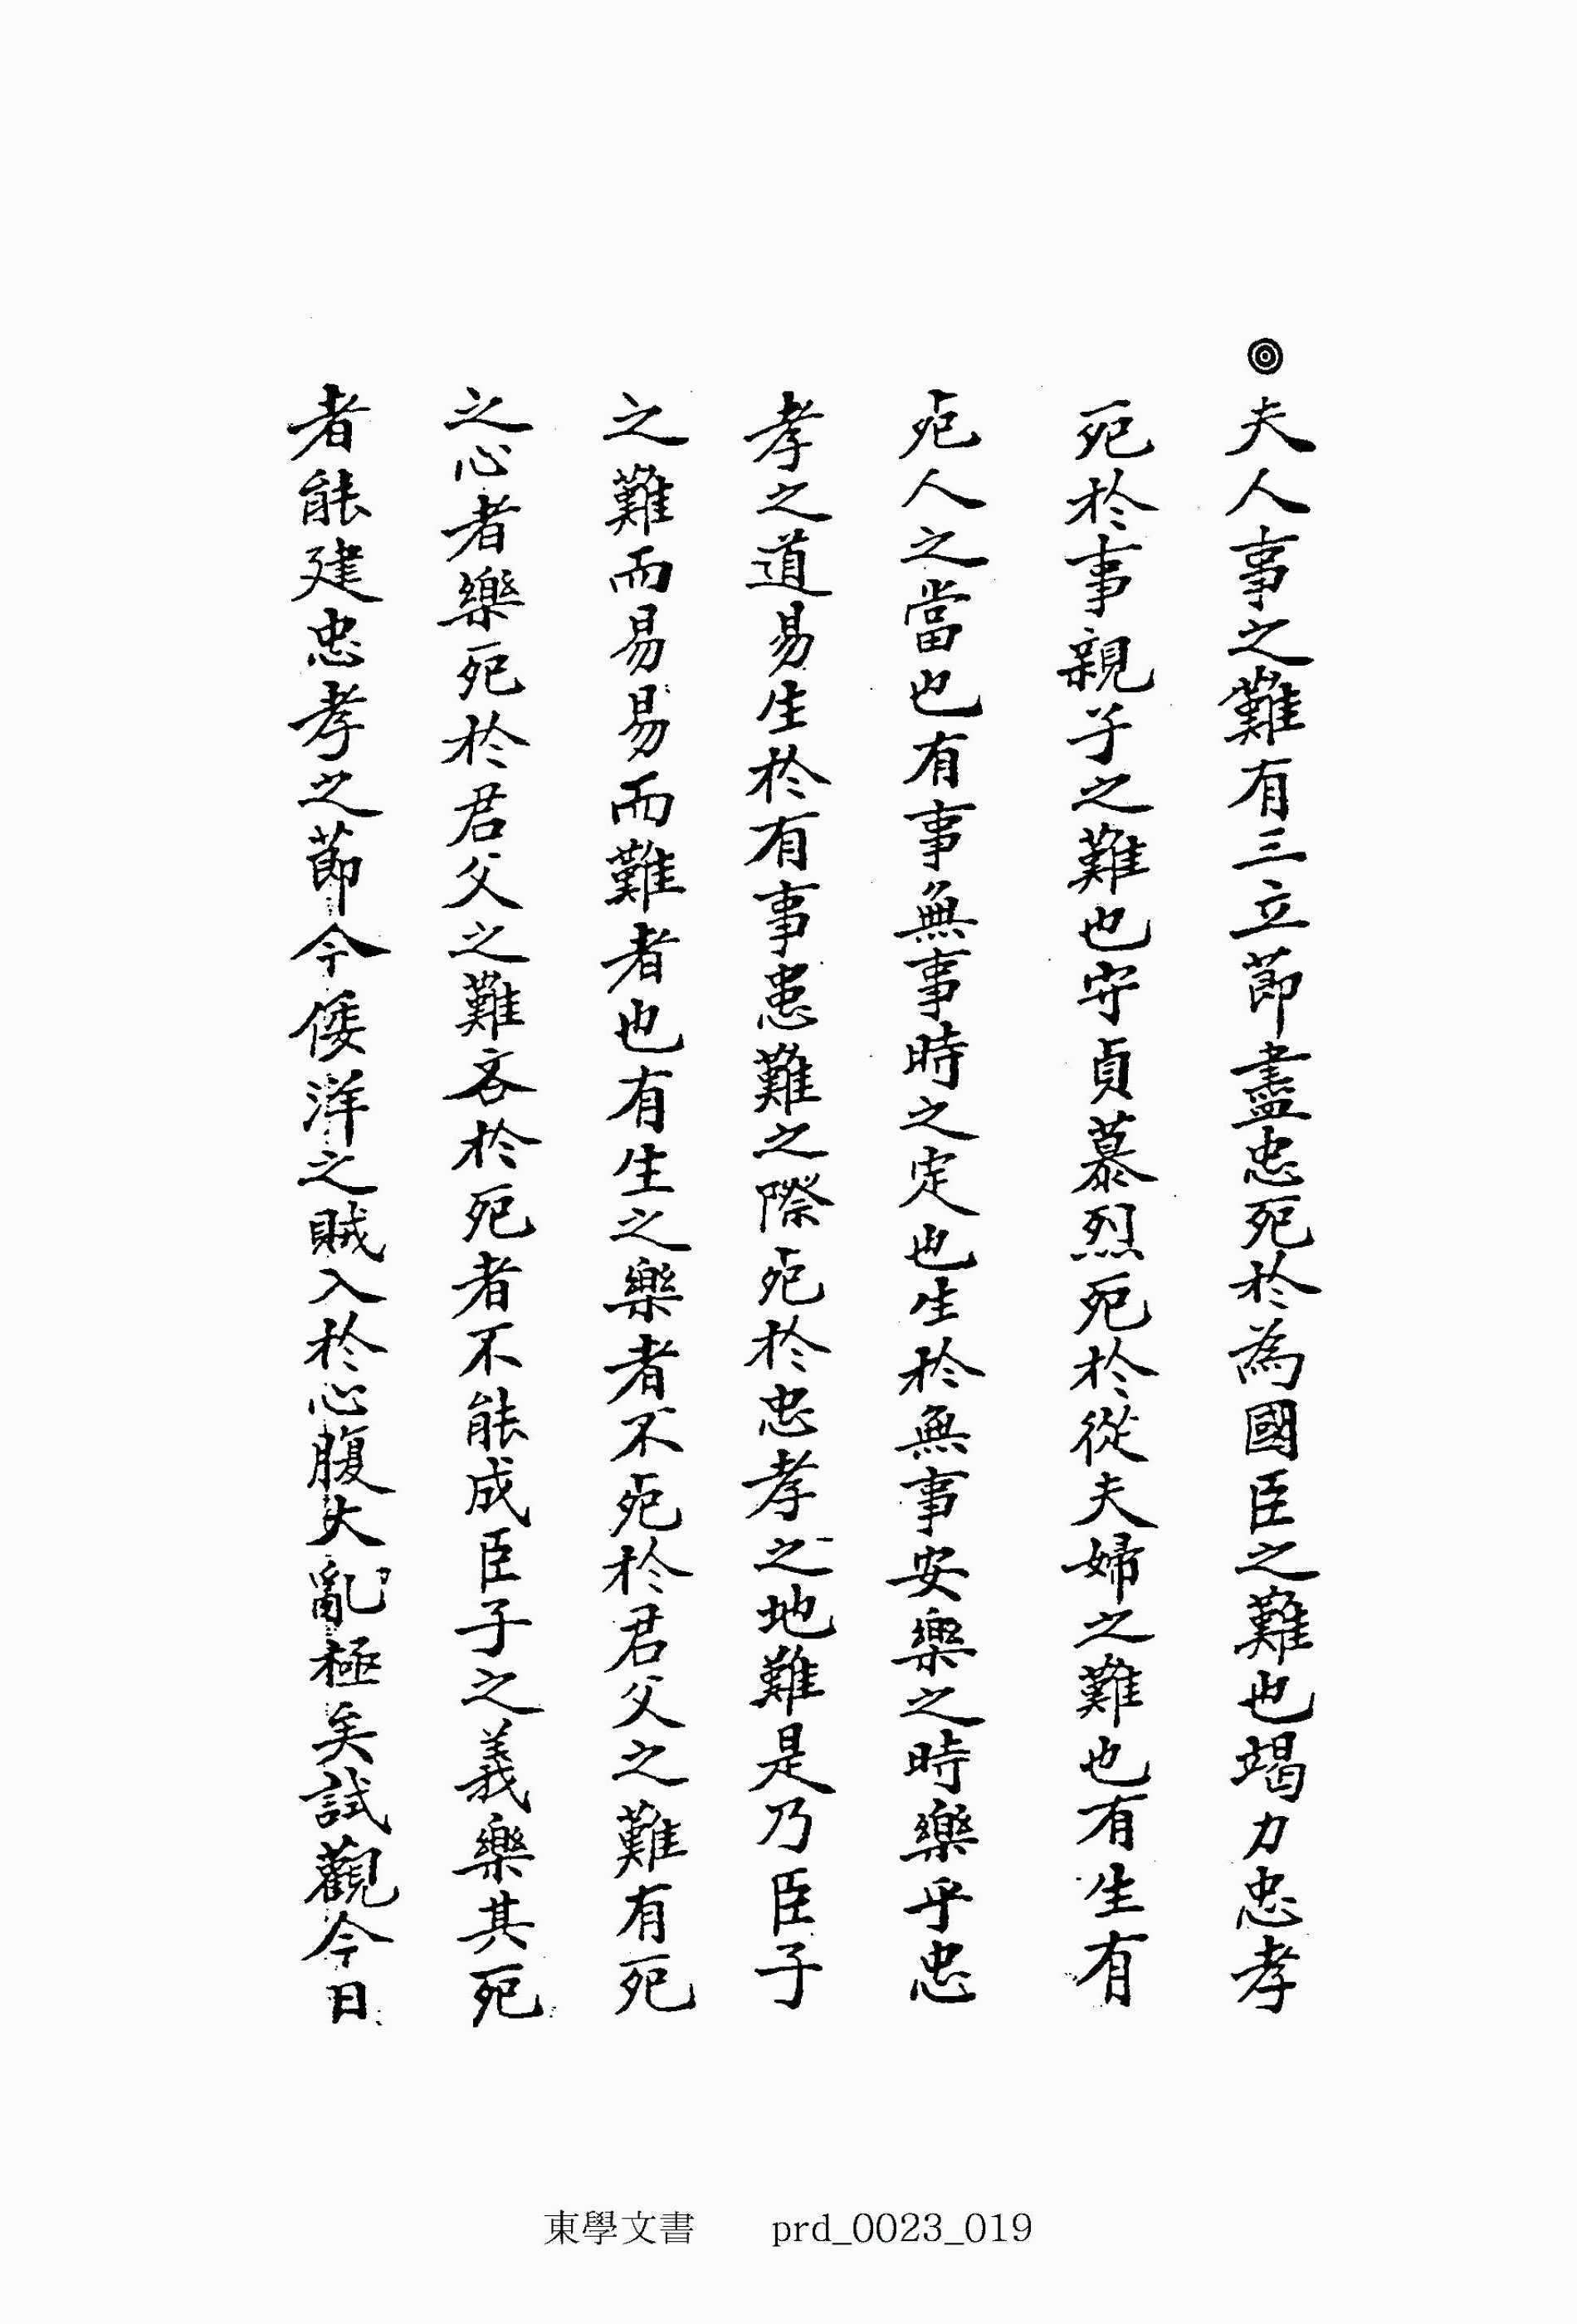 ◎夫人事之難有三立節盡忠死於為國臣之難也竭力忠孝
死於事親子之難也守貞慕烈死於從夫婦之難也有生有
死人之當也有事無事時之定也生於無事安樂之時樂乎忠
孝之道易生於有事患難之際死於忠孝之地難是乃臣子
之難而易易而難者也有生之樂者不死於君父之難有死
之心者樂死於君父之難吝於死者不能成臣子之義樂其死
者能建忠孝之節今倭洋之賊入於心腹大亂極矣試觀今日
東學文書 prd_0023_019